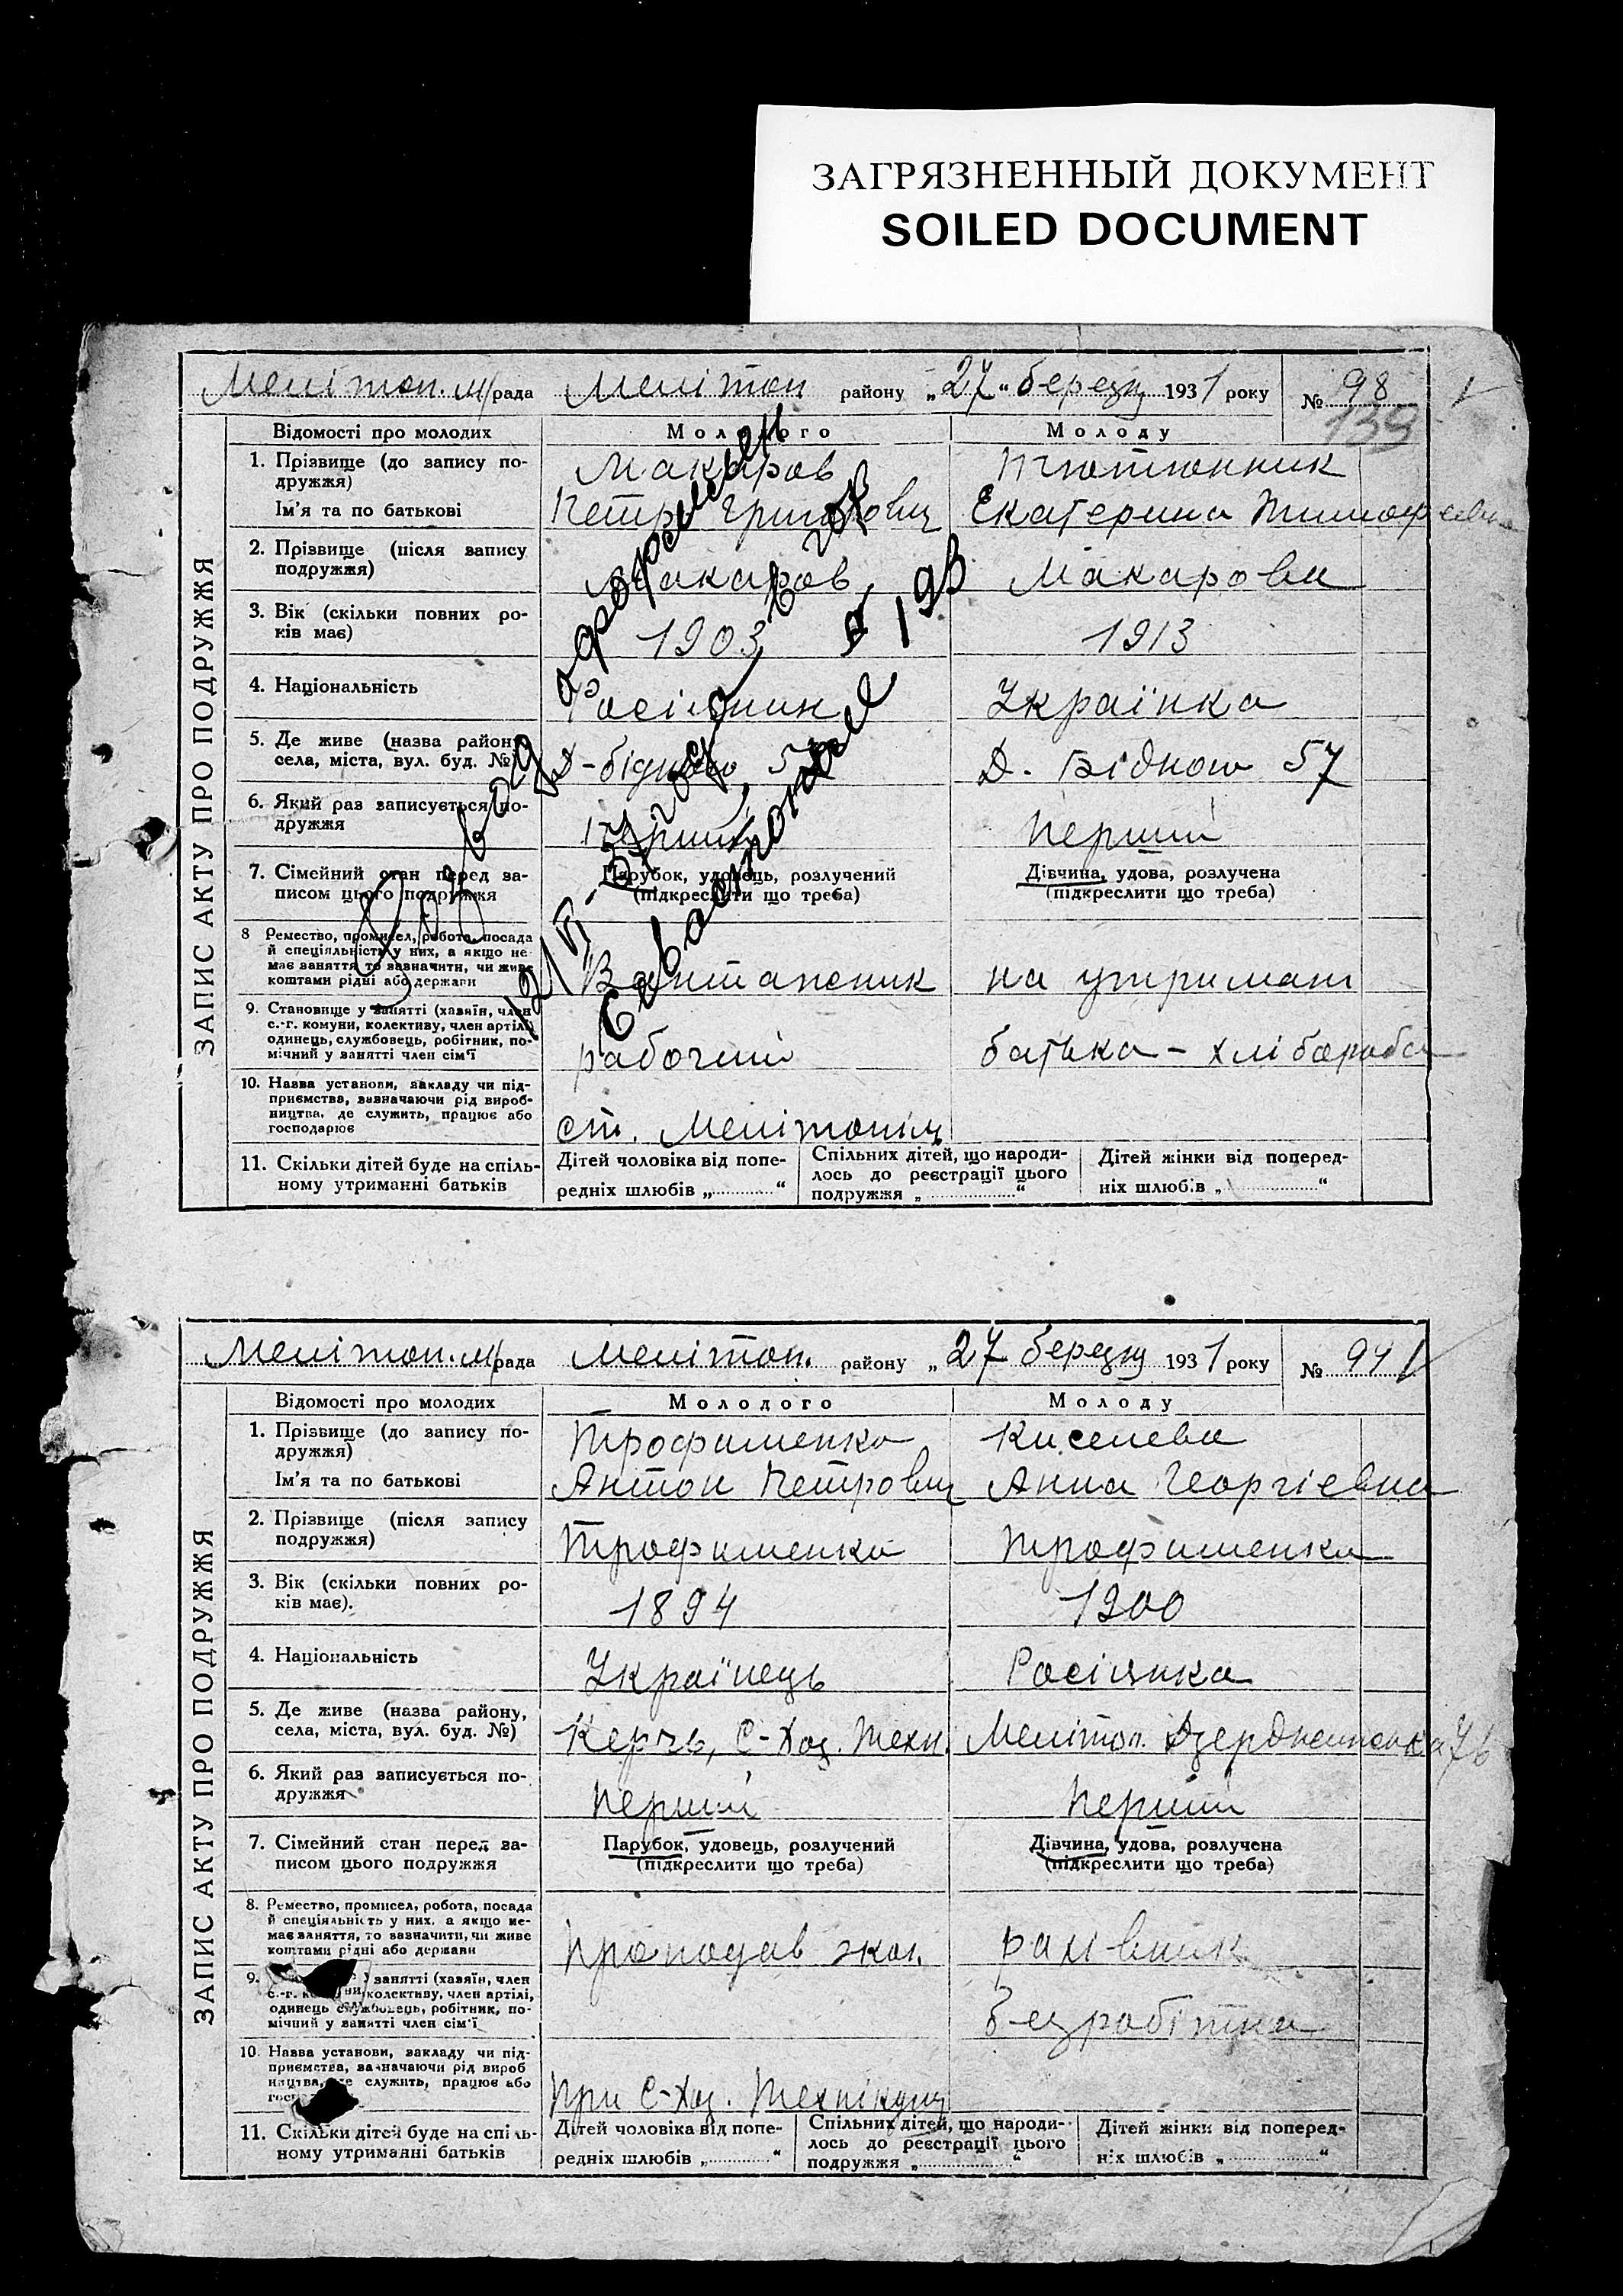 ЗАГРЯЗНЕННЫЙ ДОКУМЕНТ
SOILED DOCUMENT
Мелітоп. м/рада Мелітоп району „27“ березня 1931 року № 98
139
ЗАПИС АКТУ ПРО ПОДРУЖЖЯ
Відомості про молодих Молодого Молоду
1. Прізвище (до запису по-
дружжя) Макаров Тютюнник
Ім'я та по батькові Петро Григорович Екатерина Тимофеевна
2. Прізвище (після запису
подружжя) Макаров Макарова
3. Вік (скільки повних ро-
ків має) 1903 1913
4. Національність Росіянин Українка
5. Де живе (назва району,
села, міста, вул. буд. №) Д-бідного 57 Д. Бідного 57
6. Який раз записується по-
дружжя перший перший
7. Сімейний стан перед за-
писом цього подружжя
Парубок, удовець, розлучений
(підкреслити що треба)
Дівчина, удова, розлучена
(підкреслити що треба)
8 Ремество, промисел, робота, посада
й спеціяльність у них, а якщо не
має заняття, то зазначити, чи живе
коштами рідні або держави
Вантажник на утриман
9. Становище у занятті (хазяїн, член
с.-г. комуни, колективу, член артілі,
одинець, службовець, робітник, по-
мічний у занятті член сім'ї
рабочий батька - хлібороба
10. Назва установи, закладу чи під-
приємства, зазначаючи рід вироб-
ництва, де служить, працює або
господарює
ст. Мелітопіль
11. Скільки дітей буде на спіль-
ному утриманні батьків
Дітей чоловіка від попе-
редніх шлюбів „ “
Спільних дітей, що народи-
лось до реєстрації цього
подружжя „ “
Дітей жінки від поперед-
ніх шлюбів „ “
Развод оформлен
Севастополе
Мелітоп. м/рада Мелітоп. району „27 березня 1931 року № 94
ЗАПИС АКТУ ПРО ПОДРУЖЖЯ
Відомості про молодих Молодого Молоду
1. Прізвище (до запису по-
дружжя) Трофименко Киселева
Ім'я та по батькові Антон Петрович Анна Георгіевна
2. Прізвище (після запису
подружжя) Трофименко Трофименко
3. Вік (скільки повних ро-
ків має). 1894 1900
4. Національність Українець Росіянка
5. Де живе (назва району,
села, міста, вул. буд. №) Керчь, С-Хоз. Техн. Мелітоп. Дзержинського 76
6. Який раз записується по-
дружжя перший перший
7. Сімейний стан перед за-
писом цього подружжя
Парубок, удовець, розлучений
(підкреслити що треба)
Дівчина, удова, розлучена
(підкреслити що треба)
8. Ремество, промисел, робота, посада
й спеціяльність у них, а якщо не-
має заняття, то зазначити, чи живе
коштами рідні або держави
9. занятті (хазяїн, член
с.-г. колективу, член артілі,
одинець службовець, робітник, по-
мічний у занятті член сім'ї
Безробітна
10. Назва установи, закладу чи під-
приємства, зазначаючи рід вироб
ництва, де служить, працює або
При С-Хоз. Технікумі
11. Скільки дітей буде на спіль-
ному утриманні батьків
Дітей чоловіка від попе-
редніх шлюбів „ “
Спільних дітей, що народи-
лось до реєстрації цього
подружжя „ “
Дітей жінки від поперед-
ніх шлюбів „ “